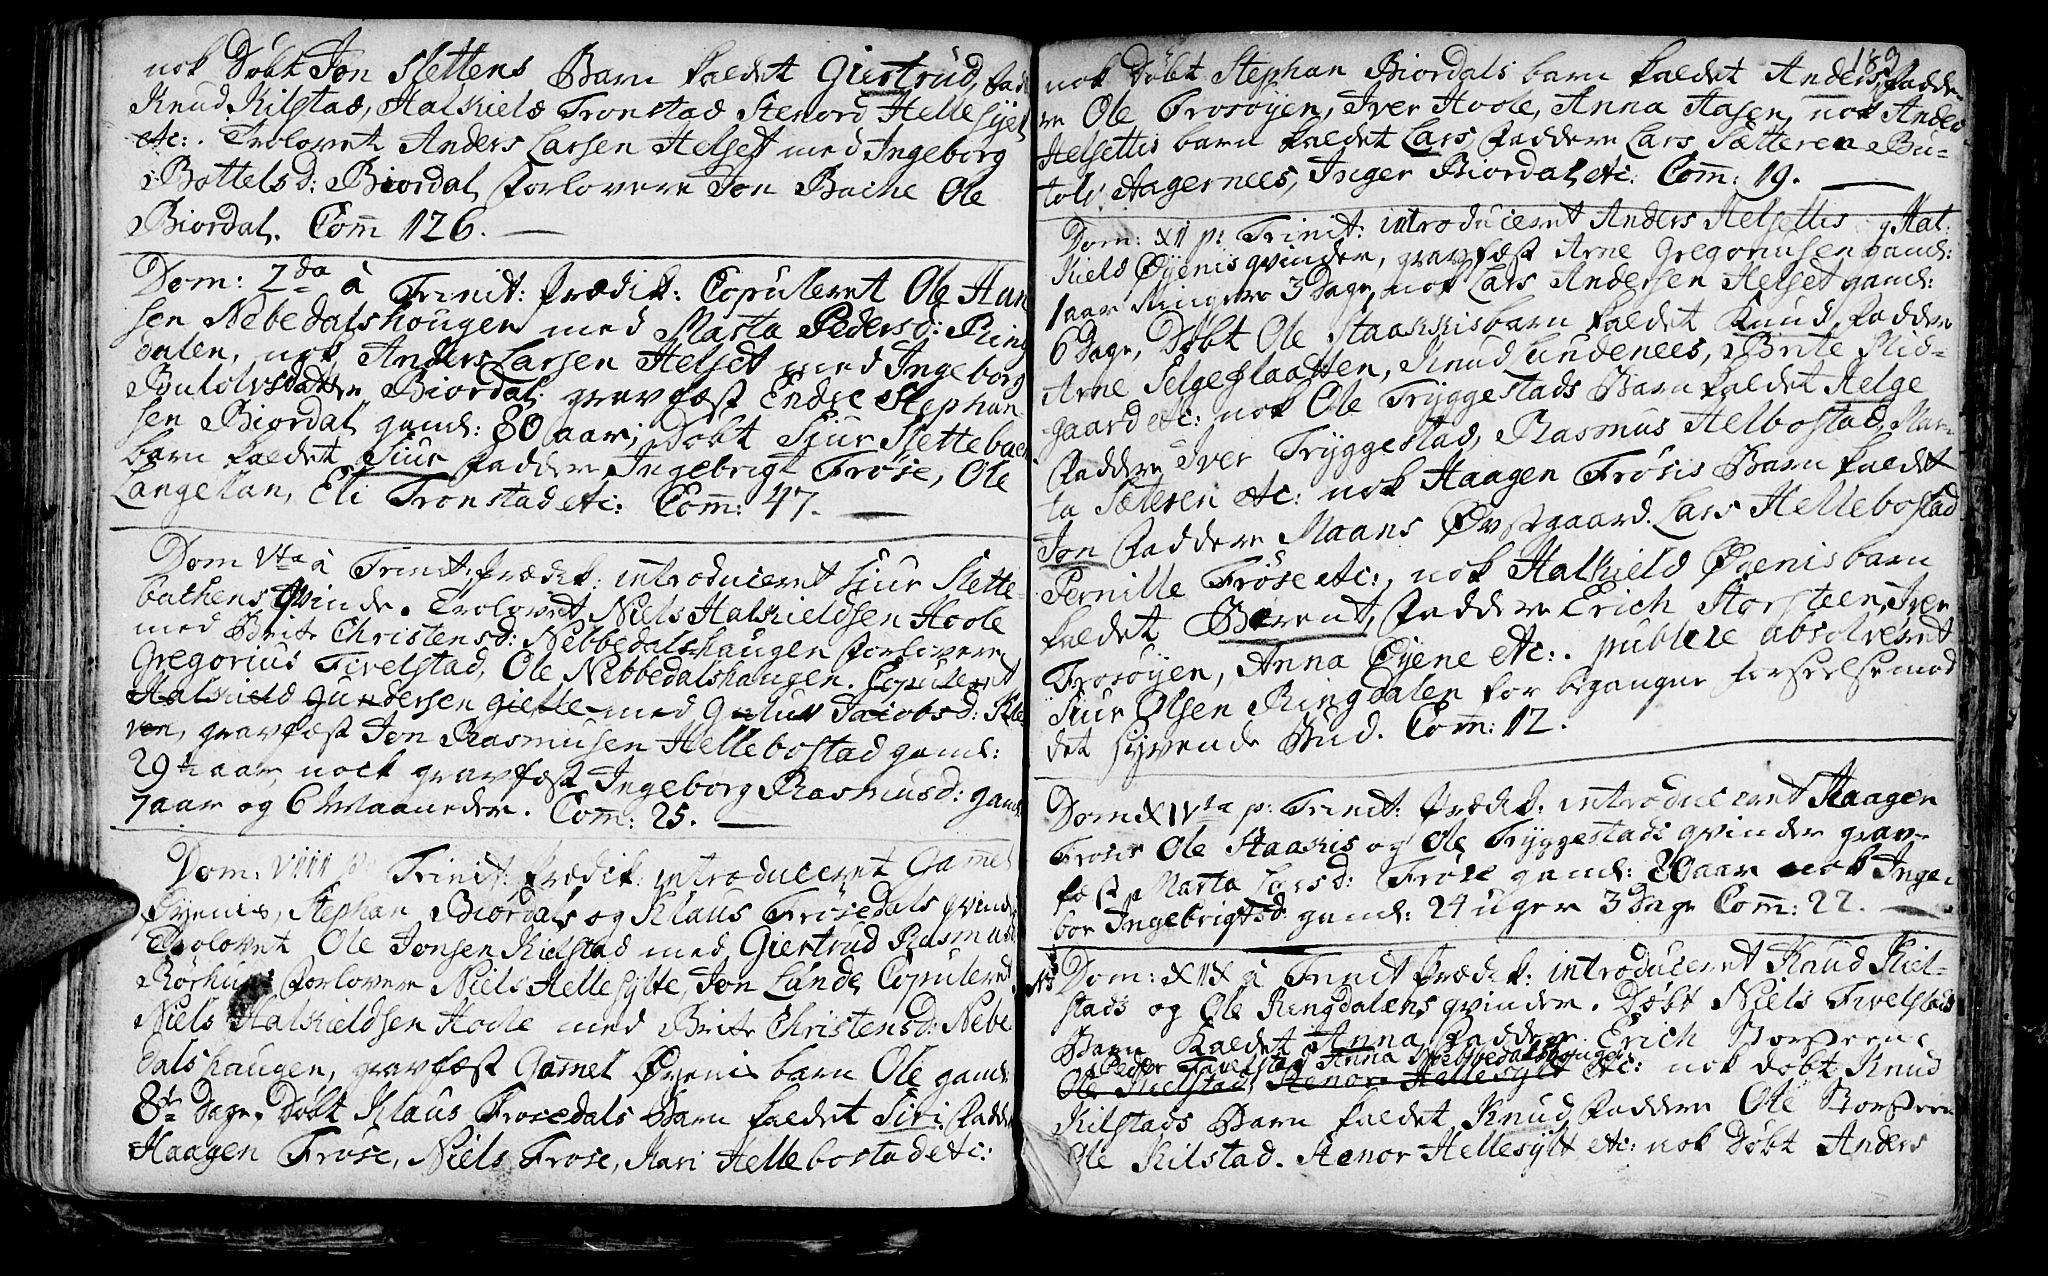 nok Døbt Jon Slettens Barn kaldet Giertrud, fadd
Knud Kilstad, Halkield Tronstad Stenord Hellesylt
etc: . Trolovet Anders Larsen Helset med Ingeborg
Bottelsd: Biordal, forlovere Jon Bache Ole
Biordal. Com̄ 126. —
Dom: 2da à Trinit: prædik: Copuleret Ole Han
sen Nebedalshougen med Marta Pedersd: Ring
dalen, nok Anders Larsen Helset med Ingeborg
Butolvsdatter Biordal, gravfæst Endre Stephan
sen Biordal gaml: 80 aar, Døbt Siur Slettebach
barn kaldet Siur faddere Ingebrigt Frøse, Ole
Langeland, Eli Tronstad etc: Com̄: 47. —
Dom Vta à Trinit: prædik: introduceret Siur Slette-
bachens Qvinde. Trolovet Niels Halkieldsen Hoole
med Brite Christensd: Nebbedalshaugen forlovere
Gregorius Tivelstad, Ole Nebbedalshaugen. Copuleret
Halkield Gundersen Gielle med Gulur Jacobsd: Kle
ven, gravfæst Jon Rasmusen Hellebostad gaml:
29 aar, nock gravfæst Ingeborg Rasmusd: gaml
7 aar og 6 Maaneder. Com̄: 25. —
Dom: VIIII p: Trinit: prædik: introduceret Gamel
Øyenis, Stephan Biordals og Klaus Frøsedals qvinder
Trolovet Ole Jonsen Kielstad med Giertrud Rasmusd
Rørhuus forlovere Niels Hellesylte, Jon Lande, Copuleret
Niels Halkieldsen Hoole med Brite Christensd: Nebe
dalshaugen, gravfæst Gamel Øyenis barn Ole gaml:
8te Dage. Døbt Klaus Frosedals Barn kaldet Siri, fadder
Haagen Frøse, Niels Frose, Kari Hellebostad etc:
183
nok Døbt Stephan Biordals barn kaldet Anders, fadde-
re Ole Frosøyen, Iver Hoole, Anna Aasen, nok Anders
Helsettis barn kaldet Lars, faddere Lars Sætteren Bu-
tolv Aagernees, Inger Biordal etc: Com̄: 19. —
Dom: XII p: Trinit: introduceret Anders Helsettis og Hal
kield Øyenis qvinder, gravfæst Arne Gregoriusen gaml:
1 aar ringere 3 Dage, nok Lars Andersen Helset gaml:
6 Dage, Døbt Ole Staakkis barn kaldet Knud, faddere
Arne Selgeslaatten, Knud Lundenees, Brite Mid-
gaard etc: nok Ole Tryggestads Barn kaldet Helge
faddere Iver Tryggestad, Rasmus Helbostad, Mar
ta Sæteren etc: nok Haagen Frøsis Barn kaldet
Jon faddere Maans Øvstgaard, Lars Hellebostad
Pernille Frøse etc:, nok Halkield Øyenis barn
kaldet Berent, faddere Erich Storsteen, Iver
Frosøyen, Anna Øyene etc: . publice absolveret
Siur Olsen Ringdalen for begangen forseelse mod
det syvende Bud. Com̄: 12.
Dom XIVta p: Trinit: prædik: introduceret Haagen
Frøsis Ole Staakis og Ole Tryggestads qvinder grav-
fæst Marta Larsd: Frøse gaml: 80 aar nok Inge-
bor Ingebrigtsd: gaml: 24 uger 3 Dage Com̄: 22. —
Dom: XIX à Trinit prædik: introduceret Knud Kiel-
stads og Ole Ringdalens qvinder. Døbt Niels Tivelstads
Barn kaldet Anna, Faddere Erich Storsteen,
Peder Tivelstad Anna Nebbedalshougen
Ole Kielstad, Stenor Hellesylt etc: nok døbt Knud
Kilstads Barn kaldet Knud, faddere Ole Storsteen
Ole Kilstad. Stenor Hellesylt etc: nok Døbt Anders